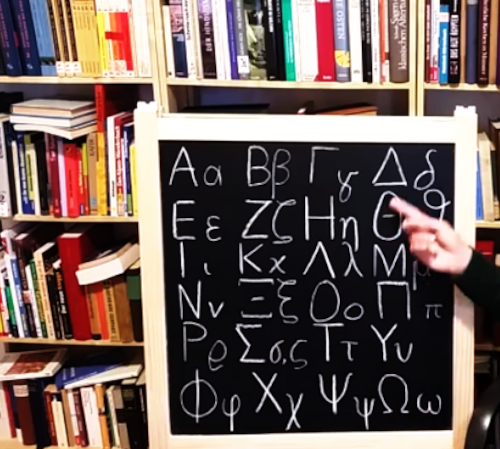 Α α Β β Γ γ Δ δ
Ε ε Ζ ζ Η η Θ ϑ
Ι ι Κ κ Λ λ Μ μ
Ν ν Ξ ξ Ο ο Π π
Ρ ρ Σ σ,ς Τ τ Υ υ
Φ φ Χ χ Ψ ψ Ω ω